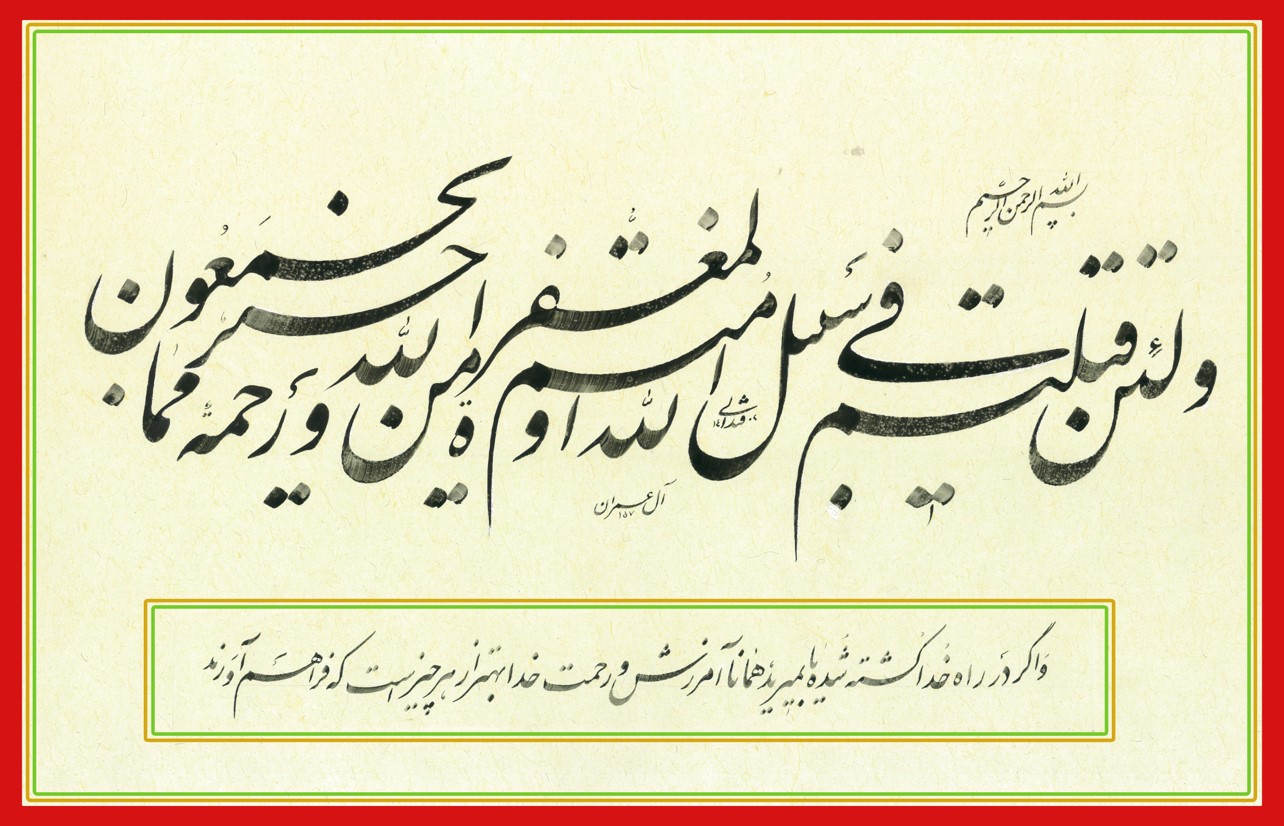 بسم الله الرحمن الرحیم
ولئن قتلتم فی سبیل الله او متم لمغفرة من الله ورحمة خیر مما یجمعون
آل عمران ۱۵۷
و اگر در راه خدا کشته شده یا بمیرید همانا آمرزش و رحمت خدا بهتر از هر چیز است که فراهم آورند